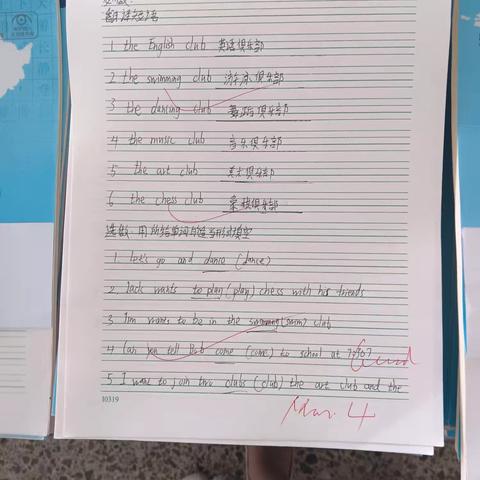 必做:
翻译短语
1 the English club 英语俱乐部
2 the swimming club 游泳俱乐部
3 the dancing club 舞蹈俱乐部
4 the music club 音乐俱乐部
5 the art club 美术俱乐部
6 the chess club 象棋俱乐部
选做,用所给单词的适当形式填空
1. Let's go and dance (dance)
2. Jack wants to play (play) chess with his friends
3 Jim wants to be in the swimming (swim) club
4 Can you tell Bob come (come) to school at
Good
5 I want to join two clubs (club) the art club and the
10319
Mar. 4